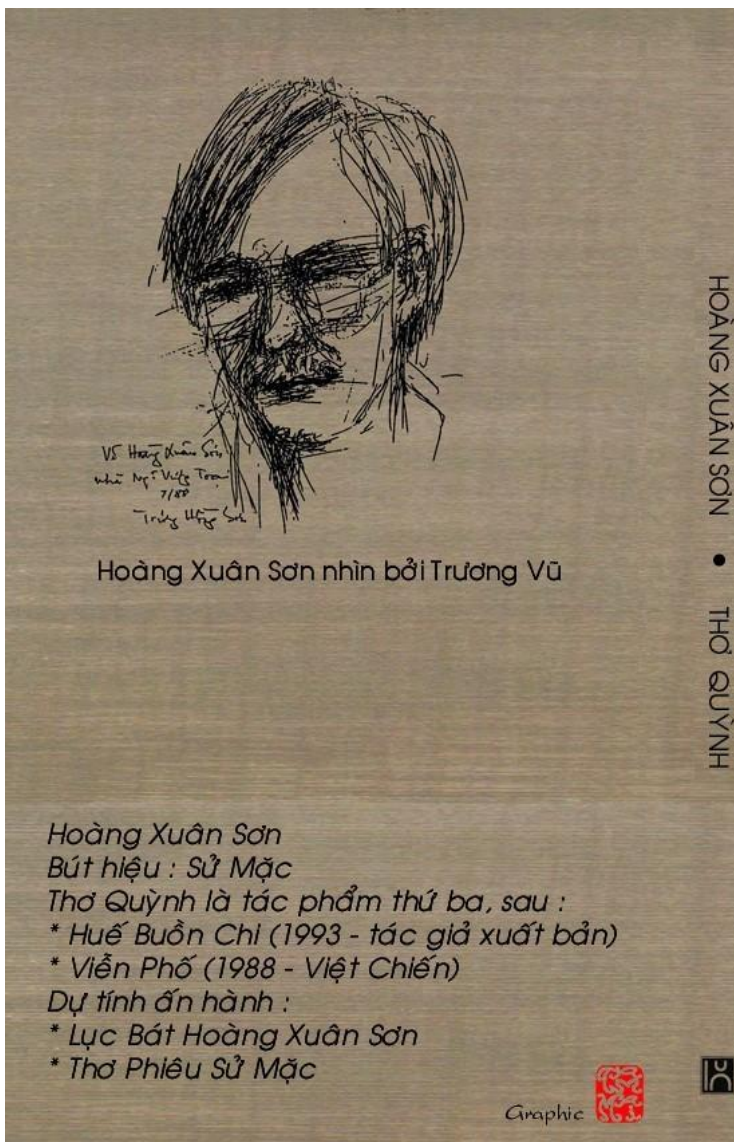 Vẽ Hoàng Xuân Sơn
nhà Ngô Vương Toại
7/88
Trương Hồng Sơn
Hoàng Xuân Sơn nhìn bởi Trương Vũ
HOÀNG XUÂN SƠN • THƠ QUỲNH
Hoàng Xuân Sơn
Bút hiệu : Sử Mặc
Thơ Quỳnh là tác phẩm thứ ba, sau :
* Huế Buồn Chi (1993 - tác giả xuất bản)
* Viễn Phố (1988 - Việt Chiến)
Dự tính ấn hành :
* Lục Bát Hoàng Xuân Sơn
* Thơ Phiêu Sử Mặc
Graphic